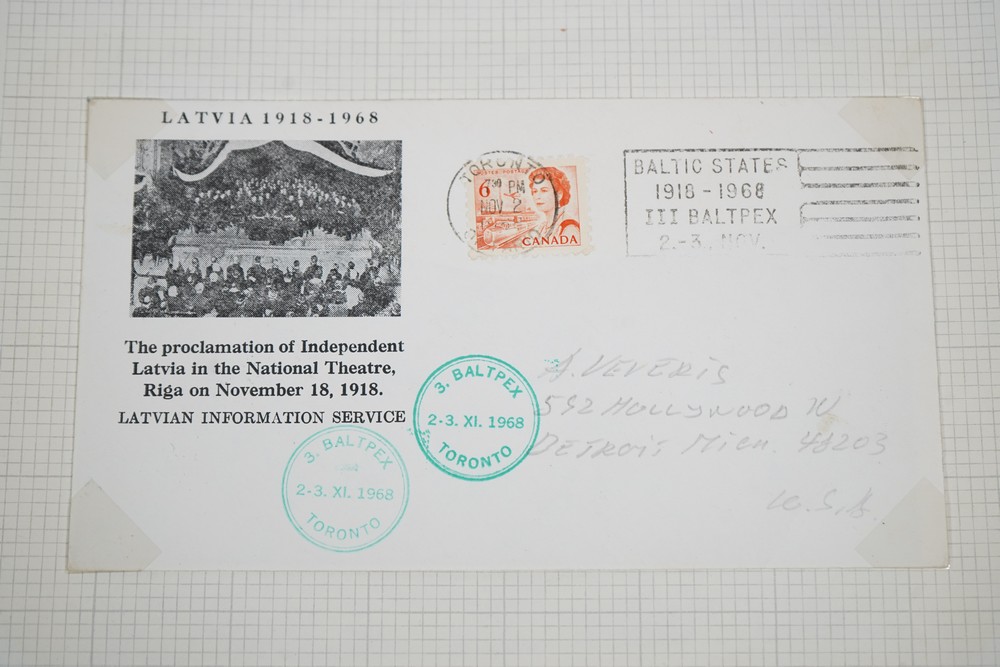 LATVIA 1918-1968
The proclamation of Independent
Latvia in the National Theatre,
Riga on November 18, 1918.
LATVIAN INFORMATION SERVICE
TORONTO
7 30 PM
NOV 2
6
CANADA
BALTIC STATES
1918-1968
III BALTPEX
2.-3. NOV.
3. BALTPEX
2-3. XI. 1968
TORONTO
3. BALTPEX
2-3. XI. 1968
TORONTO
A. VEVERIS
592 HOLLYWOOD
DETROIT MICH. 48203
U.S.A.